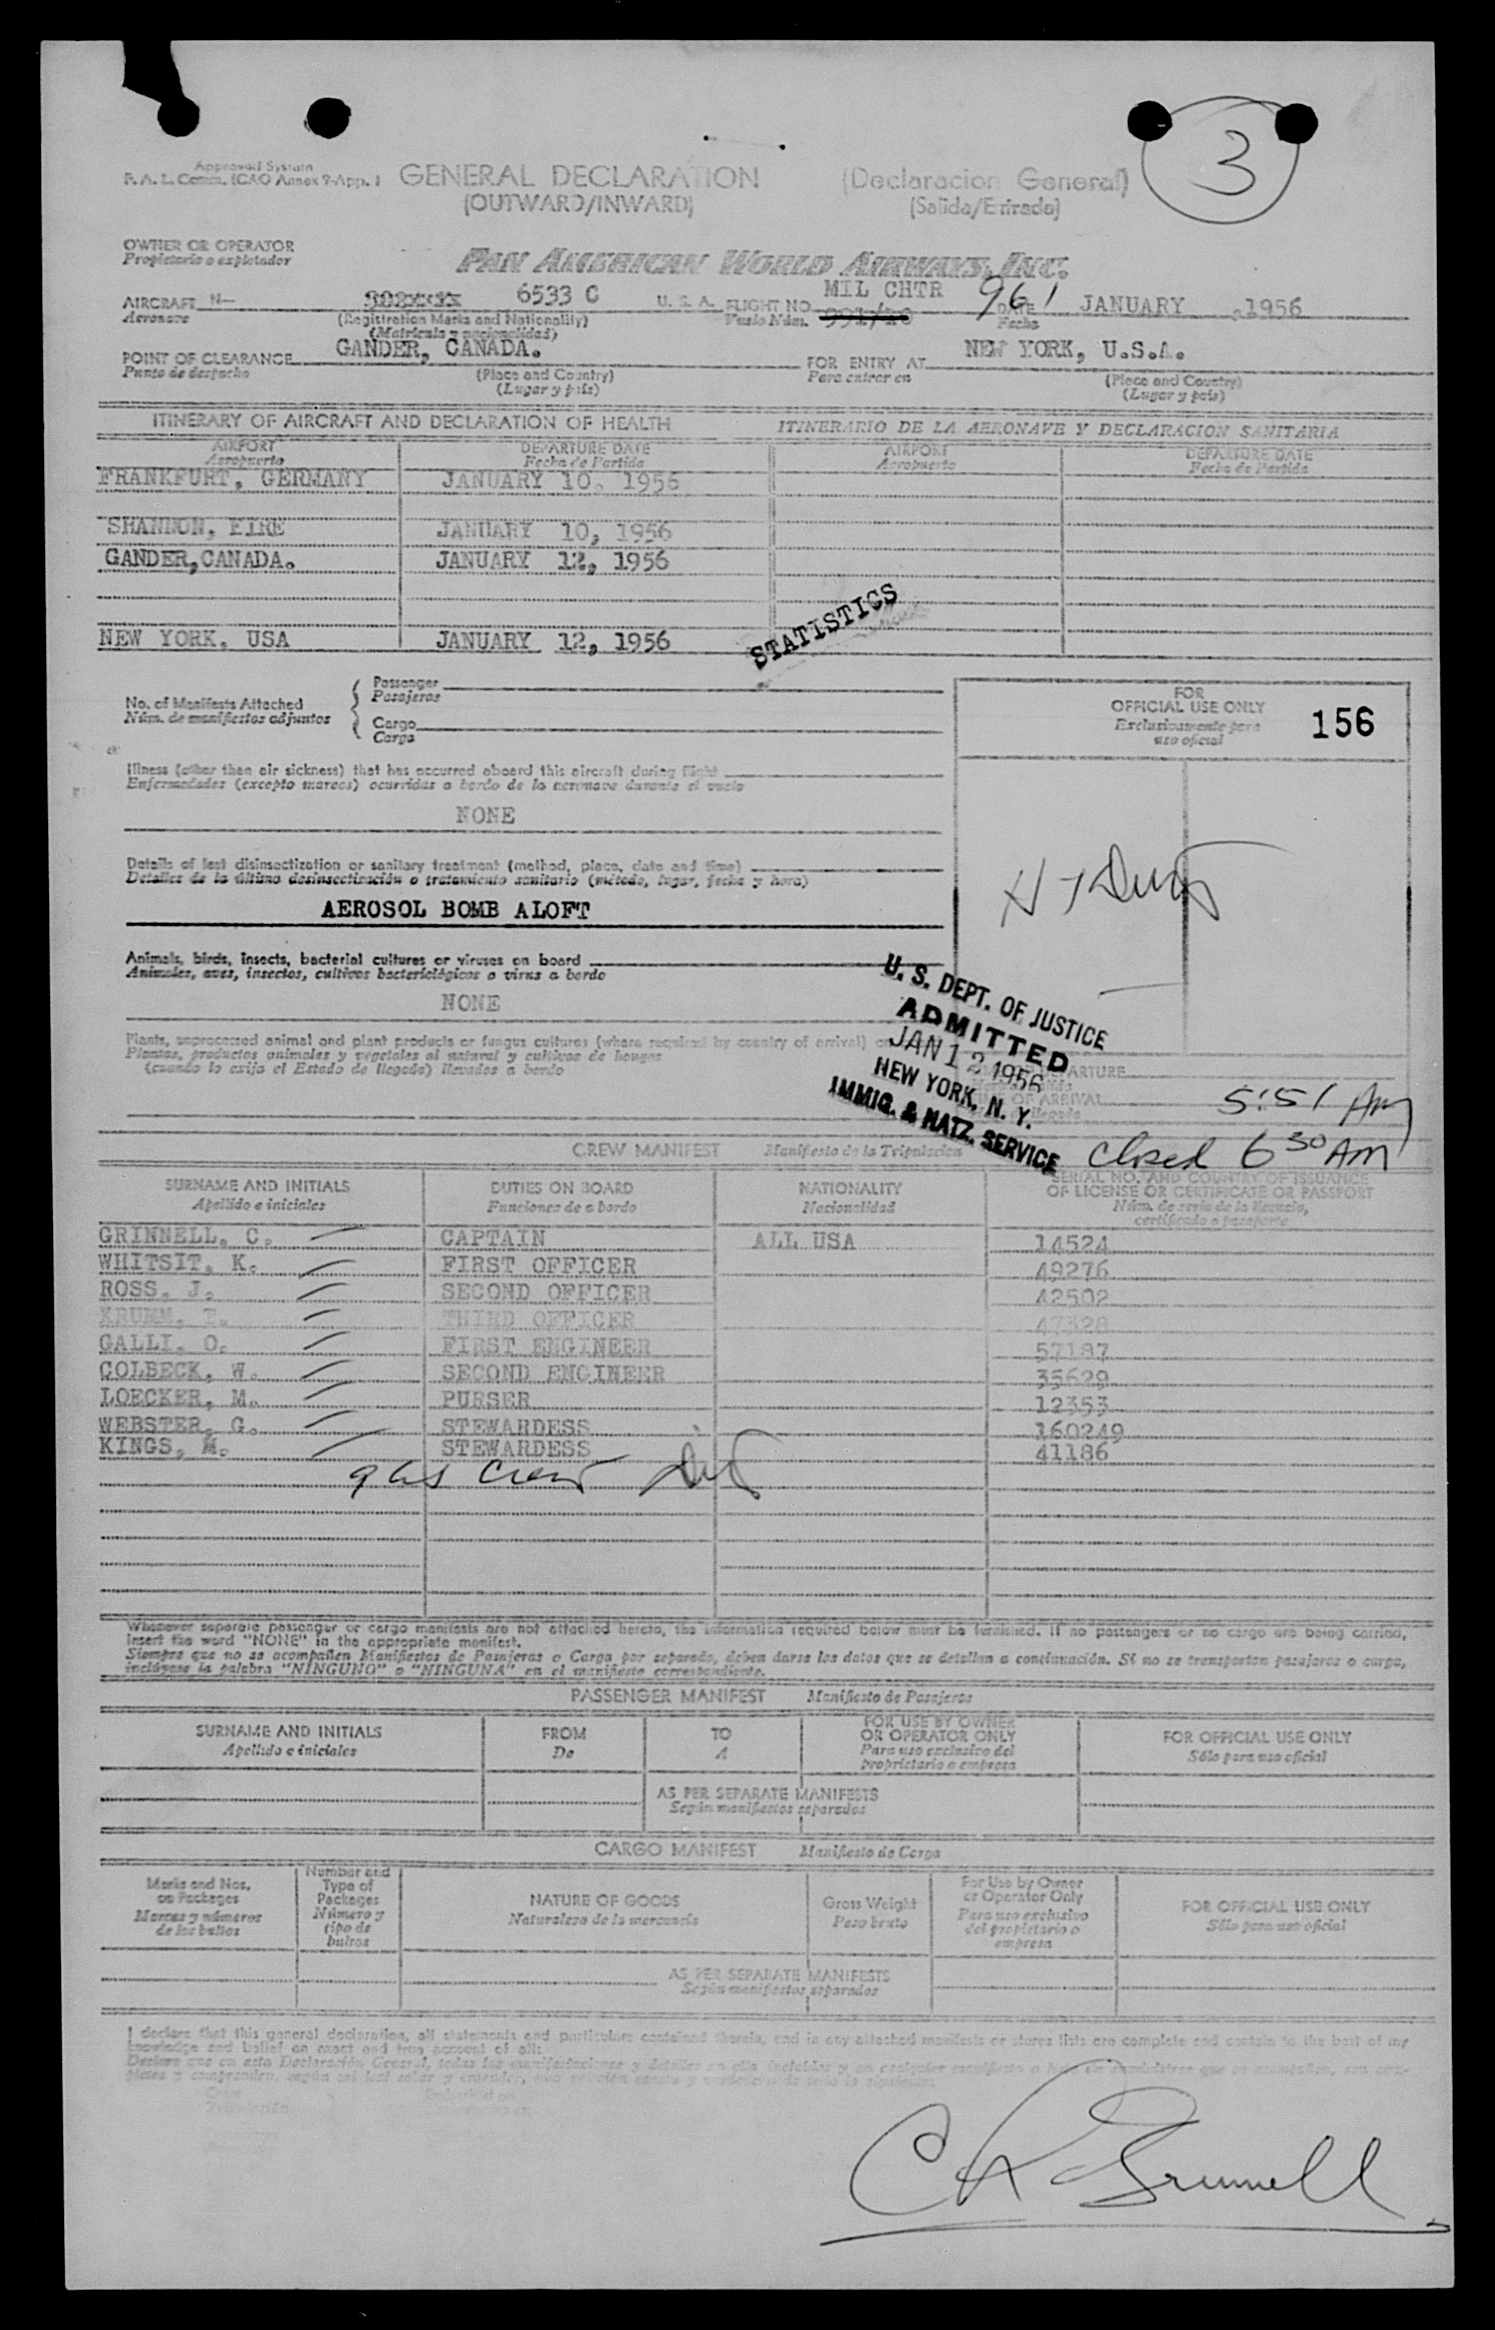 3
Approval System
F. A. L. Comm. ICAO Annex 9-App. 1
GENERAL DECLARATION (Declaracion General)
(OUTWARD/INWARD) (Salida/Entrada)
OWNER OR OPERATOR
Propietario o explotador
PAN AMERICAN WORLD AIRWAYS, INC.
AIRCRAFT N- 6533 C U. S. A. FLIGHT NO. MIL CHTR 961 DATE JANUARY ,1956
Aeronave (Registration Marks and Nationality) Vuelo Núm. Fecha
(Matricula y nacionalidad)
POINT OF CLEARANCE GANDER, CANADA. FOR ENTRY AT NEW YORK, U.S.A.
Punto de despacho (Place and Country) Para entrar en (Place and Country)
(Lugar y país) (Lugar y país)
ITINERARY OF AIRCRAFT AND DECLARATION OF HEALTH ITINERARIO DE LA AERONAVE Y DECLARACION SANITARIA
AIRPORT DEPARTURE DATE AIRPORT DEPARTURE DATE
Aeropuerto Fecha de Partida Aeropuerto Fecha de Partida
FRANKFURT, GERMANY JANUARY 10, 1956
SHANNON, EIRE JANUARY 10, 1956
GANDER,CANADA. JANUARY 12, 1956
STATISTICS
NEW YORK, USA JANUARY 12, 1956
No. of Manifests Attached
Núm. de manifiestos adjuntos
Passenger
Pasajeros
Cargo
Carga
FOR
OFFICIAL USE ONLY
Exclusivamente para
uso oficial
156
Illness (other than air sickness) that has occurred aboard this aircraft during flight
Enfermedades (excepto mareos) ocurridas a bordo de la aeronave durante el vuelo
NONE
Details of last disinsectization or sanitary treatment (method, place, date and time)
Detalles de la última desinsectización o tratamiento sanitario (método, lugar, fecha y hora)
AEROSOL BOMB ALOFT
Animals, birds, insects, bacterial cultures or viruses on board
Animales, aves, insectos, cultivos bacteriológicos o virus a bordo
NONE
Plants, unprocessed animal and plant products or fungus cultures (where required by country of arrival)
Plantas, productos animales y vegetales al natural y cultivos de hongos
(cuando lo exija el Estado de llegada) llevados a bordo
U. S. DEPT. OF JUSTICE
ADMITTED
JAN 12 1956
NEW YORK, N. Y.
IMMIG. & NATZ. SERVICE
OF ARRIVAL 5:51 AM
closed 6 30 AM
CREW MANIFEST Manifiesto de la Tripulacion
SURNAME AND INITIALS DUTIES ON BOARD NATIONALITY SERIAL NO. AND COUNTRY OF ISSUANCE
OF LICENSE OR CERTIFICATE OR PASSPORT
Apellido e iniciales Funciones de a bordo Nacionalidad Núm. de serie de la licencia,
certificado o pasaporte
GRINNELL, C. CAPTAIN ALL USA 14524
WHITSIT, K. FIRST OFFICER 49276
ROSS, J. SECOND OFFICER 42502
KRUMM, E. THIRD OFFICER 47328
GALLI, O. FIRST ENGINEER 57187
COLBECK, W. SECOND ENGINEER 35629
LOECKER, M. PURSER 12353
WEBSTER, G. STEWARDESS 160249
KINGS, M. STEWARDESS 41186
9 US Crew
Whenever separate passenger or cargo manifests are not attached hereto, the information required below must be furnished. If no passengers or no cargo are being carried,
insert the word "NONE" in the appropriate manifest.
Siempre que no se acompañen Manifiestos de Pasajeros o Carga por separado, deben darse los datos que se detallan a continuación. Si no se transportan pasajeros o carga,
inclúyase la palabra "NINGUNO" o "NINGUNA" en el manifiesto correspondiente.
PASSENGER MANIFEST Manifiesto de Pasajeros
SURNAME AND INITIALS FROM TO FOR USE BY OWNER
OR OPERATOR ONLY FOR OFFICIAL USE ONLY
Apellido e iniciales De A Para uso exclusivo del
proprietario o empresa Sólo para uso oficial
AS PER SEPARATE MANIFESTS
Según manifiestos separados
CARGO MANIFEST Manifiesto de Carga
Marks and Nos.
on Packages
Marcas y números
de los bultos
Number and
Type of
Packages
Número y
tipo de
bultos
NATURE OF GOODS
Naturaleza de la mercancía
Gross Weight
Peso bruto
For Use by Owner
or Operator Only
Para uso exclusivo
del propietario o
empresa
FOR OFFICIAL USE ONLY
Sólo para uso oficial
AS PER SEPARATE MANIFESTS
Según manifiestos separados
I declare that this general declaration, all statements and particulars contained therein, and in any attached manifests or stores lists are complete and contain to the best of my
knowledge and belief an exact and true account of all:
C Grinnell